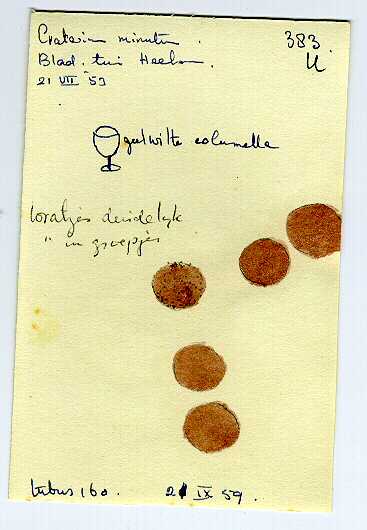 Craterium minutum. 383
Blad. tuin Heelsum. U
21 VII 59
geelwitte columella
wratjes duidelyk
" in groepjes
tubus 160. 21 IX 59.